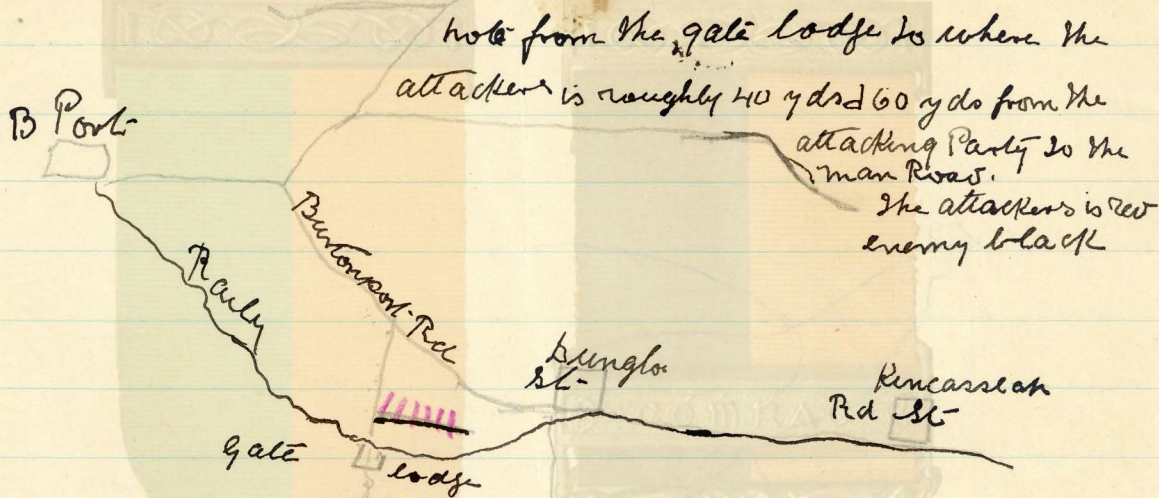 note from the gate lodge to where the
attackers is roughly 40 yds d 60 yds from the
attacking Party to the
man Road.
The attackers is red
enemy black
B Port
Burtonport Rd
Railw
Dunglo
St
Kincasslah
Rd St
gate lodge